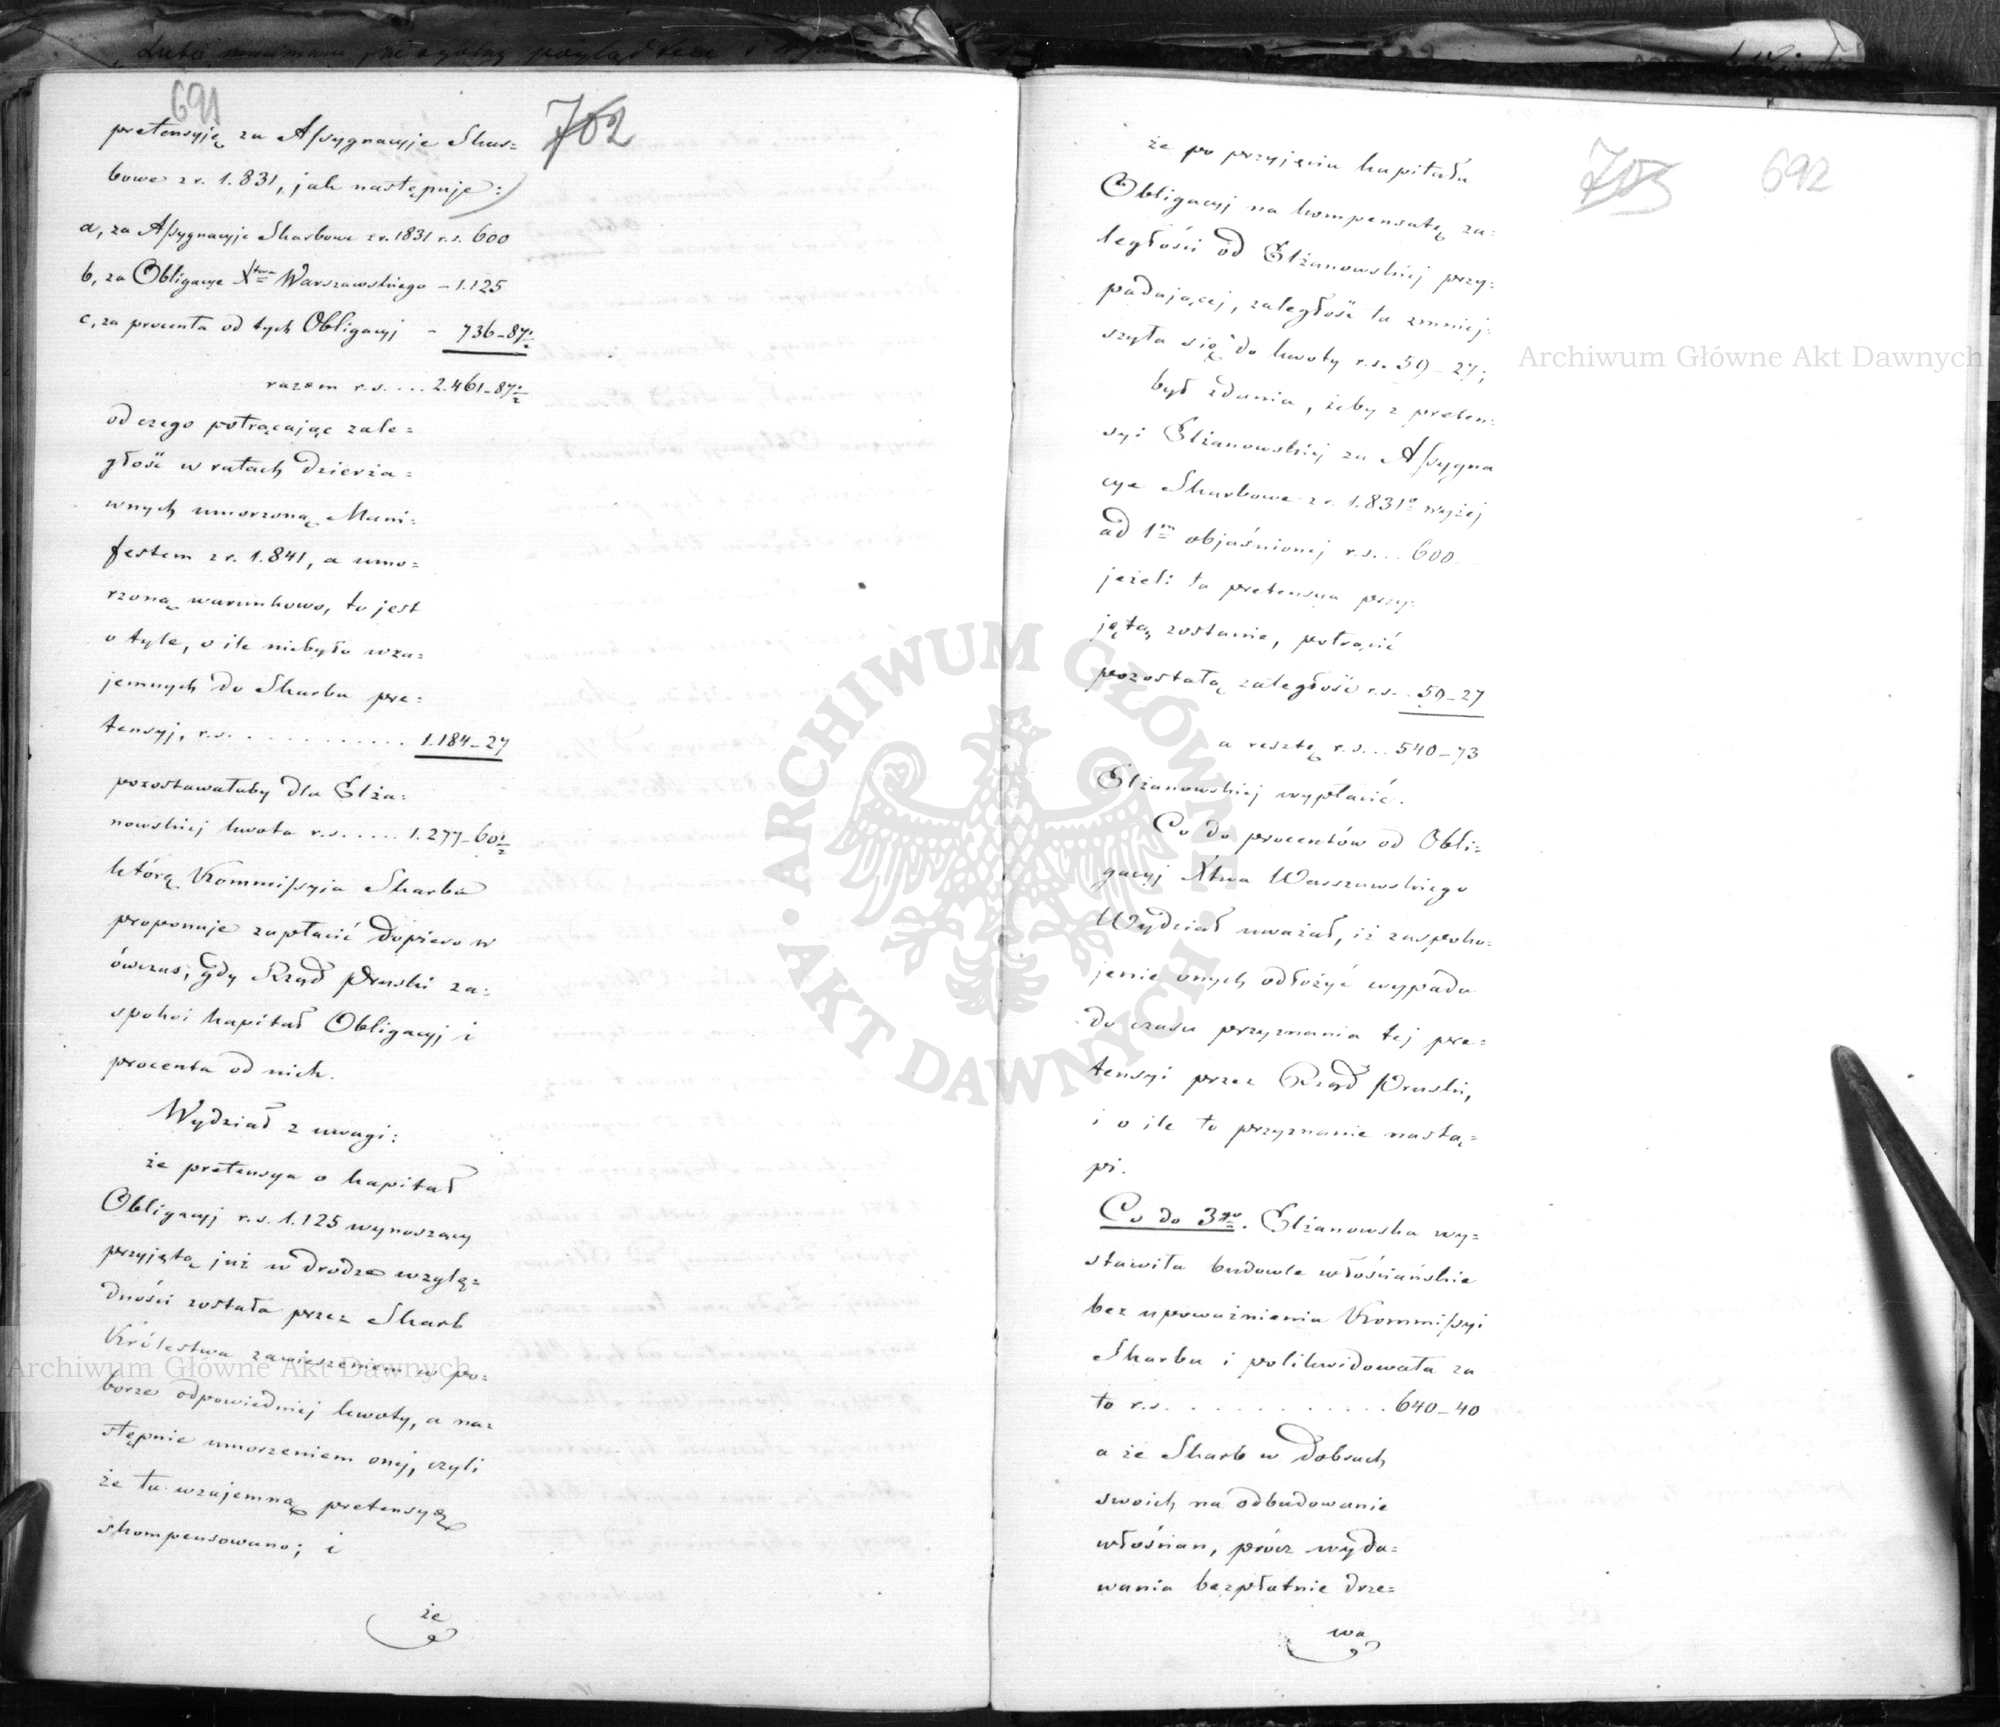 691
702
pretensyję za Assygnacyje Skar=
bowe z r. 1.831, jak następuje:
a, za Assygnacyje Skarbowe z r. 1831 r.s. 600
b, za Obligacye Xtwa Warszawskiego – 1.125
c, za procenta od tych Obligacyj – 736–87½
razem r.s. ... 2.461–87½
od czego potrącając zale=
głość w ratach dzierża=
wnych umorzoną Mani=
festem z r. 1.841, a umo=
rzoną warunkowo, to jest
o tyle, o ile niebyło wza=
jemnych do Skarbu pre=
tensyj, r.s. . . . . . . . . . . . 1.184–27
pozostawałaby dla Elża=
nowskiej kwota r.s. . . . . . 1.277–60½
którą Kommissyja Skarbu
proponuje zapłacić dopiero w
ówczas, gdy Rząd Pruski za=
spokoi kapitał Obligacyj i
procenta od nich.
Wydział z uwagi:
że pretensya o kapitał
Obligacyj r.s. 1.125 wynoszący
przyjętą już w drodze wzglę=
dności została przez Skarb
Królestwa zawieszeniem w po=
borze odpowiedniej kwoty, a na=
stępnie umorzeniem onej, czyli
że tu wzajemną pretensyę
skompensowano; i
że
703
692
że po przyjęciu kapitału
Obligacyj na kompensatę za=
ległości od Elżanowskiej przy=
padającej, zaległość ta zmniej=
szyła się do kwoty r.s. 59–27;
był zdania, żeby z preten=
syi Elżanowskiej za Assygna
cye Skarbowe z r. 1.831º wyżej
ad 1m objaśnionej r.s. .. 600
jeżeli ta pretensya przy=
jętą zostanie, potrącić
pozostałą zaległość r.s. . 59–27
a resztę r.s. .. 540–73
Elżanowskiej wypłacić.
Co do procentów od Obli=
gacyj Xtwa Warszawskiego
Wydział uważał, iż zaspoko=
jenie onych odłożyć wypada
do czasu przyznania tej pre=
tensyi przez Rząd Pruski,
i o ile to przyznanie nastą=
pi.
Co do 3go. Elżanowska wy=
stawiła budowle włościańskie
bez upoważnienia Kommissyi
Skarbu i polikwidowała za
to r.s. . . . . . . . . . . . . 640–40
a że Skarb w dobrach
swoich na odbudowanie
włościan, prócz wyda=
wania bezpłatnie drze=
wa
Archiwum Główne Akt Dawnych
Archiwum Główne Akt Dawnych
ARCHIWUM GŁÓWNE AKT DAWNYCH